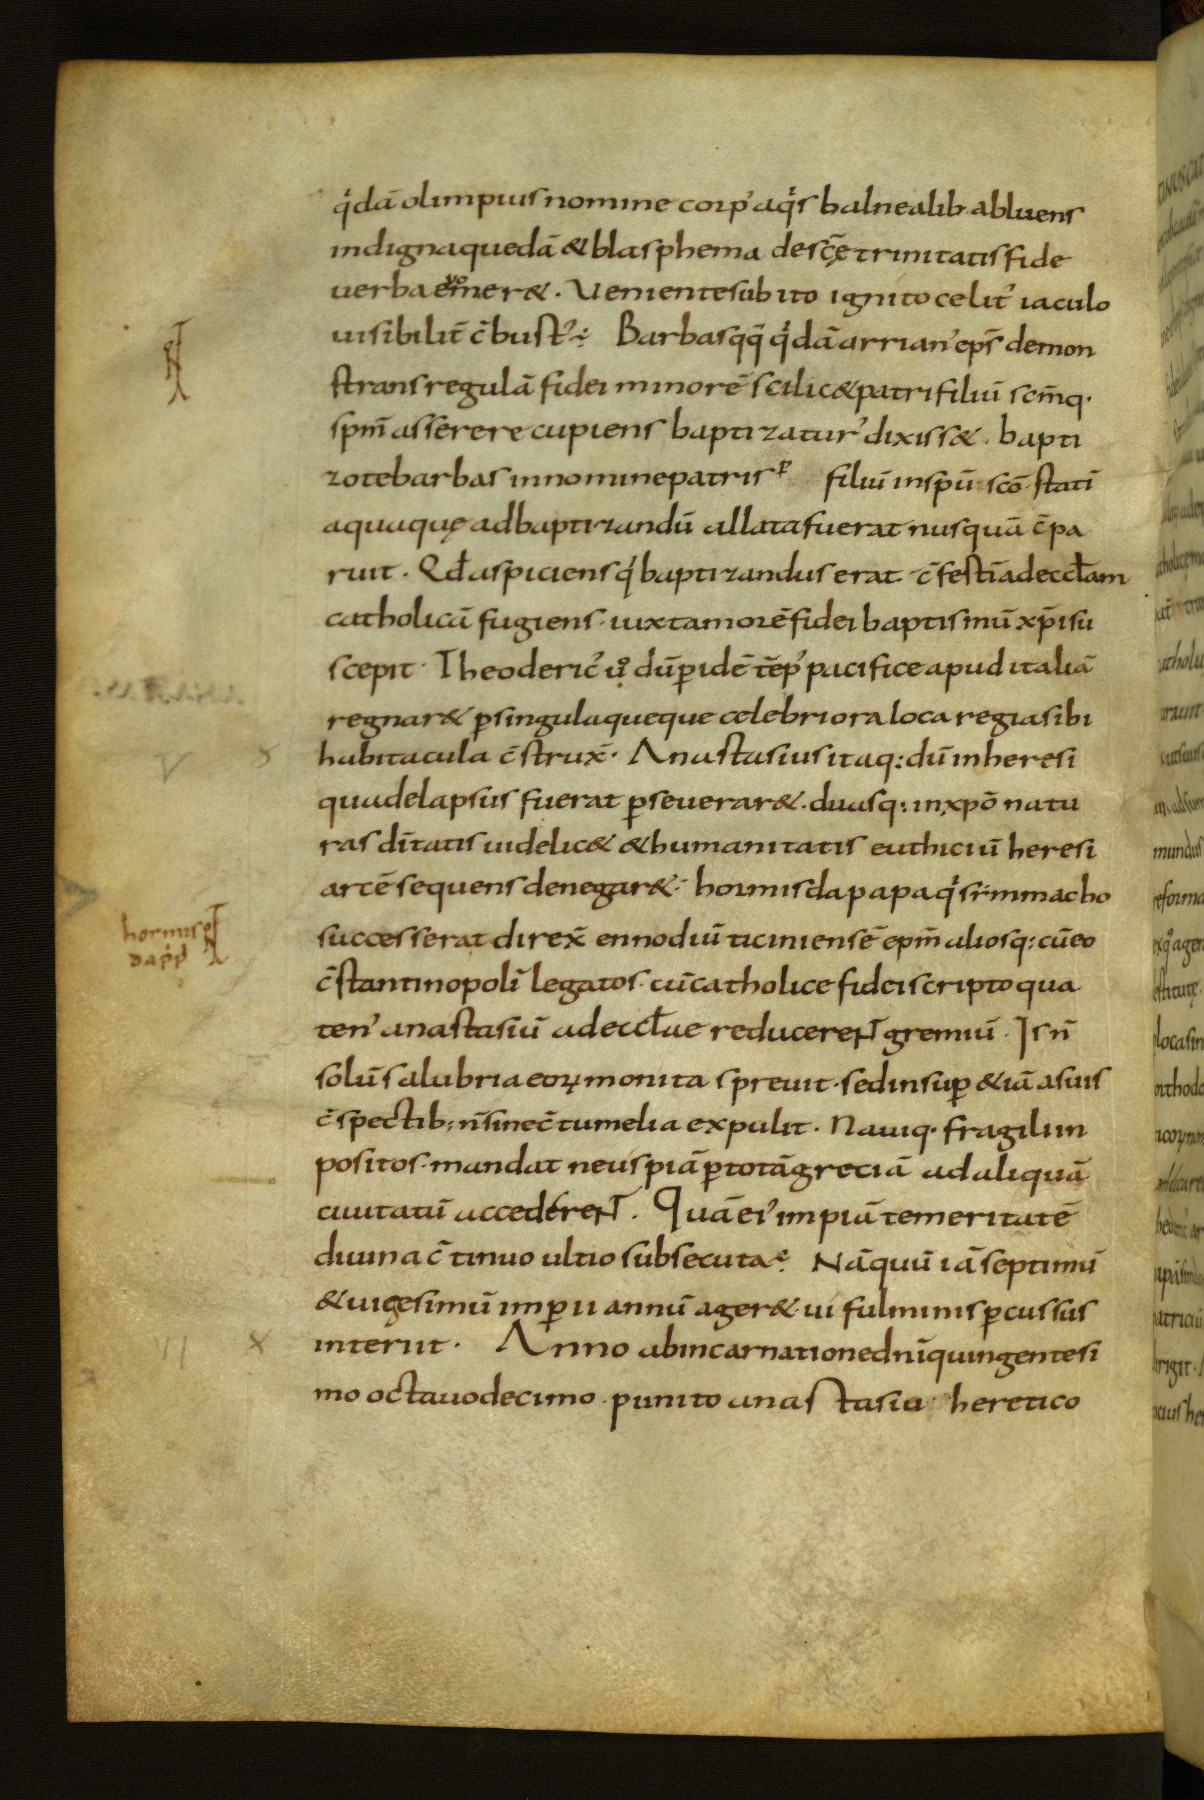 qͥdā olimpius nomine corp᾽ aqͥs balnealib· abluens
indigna quedā & blasphema de scę̄ trinitatis fide
uerba emͧͦner&. Ueniente subito ignito celit᾽ iaculo
uisibilit̄ c̄bust᾽ ÷ Barbas qq̄ qͥdā arrian᾽ ep̄s demon
strans regulā fidei minorē scilic& patri filiū sc̄mq·
sp̄m asserere cupiens baptizatur᾽ dixiss&. bapti
zo te barbas in nomine patris ᵖ filiū in sp̄ū scō statī
aqua quę ad baptizandū allata fuerat nusquā c̄pa
ruit. Qđ aspiciens qͥ baptizandus erat c̄festī ad eccl̄am
catholicā fugiens· iuxta morē fidei baptismū xp̄i su
scepit· Theoderic᾽ uͦ dū ꝑ idē tēp᾽ pacifice apud italiā
regnar& ꝑ singula queque celebriora loca regia sibi
habitacula c̄strux̄· Anastasius itaq: dū in heresi
qua delapsus fuerat ꝑseuerar&. duasq: in xp̄o natu
ras dīitatis uidelic& & humanitatis euthiciū heresi
arcē sequens denegar&· hormisda papa qͥ simmacho
successerat direx̄ ennodiū ticiniensē ep̄m aliosq: cū eo
c̄stantinopolī legatos· cū catholice fidei scripto qua
ten᾽ anastasiū ad eccl̄ae reducerent gremiū· Is n̄
solū salubria eoꝝ monita spreuit· sed insuꝑ &iā a suis
c̄spectib; n̄ sine c̄tumelia expulit. Nauiq· fragili in
positos· mandat ne uspiā ꝑ totā greciā ad aliquā
ciuitatū accederent. Quā ei᾽ impiā temeritatē
diuina c̄tinuo ultio subsecuta ÷ Nā quū iā septimū
& uigesimū imꝑii annū ager& ui fulminis ꝑcussus
interiit. Anno ab incarnatione dnī quingentesi
mo octauodecimo· punito anastasio heretico
hormis
da pp
V
X
VI
X